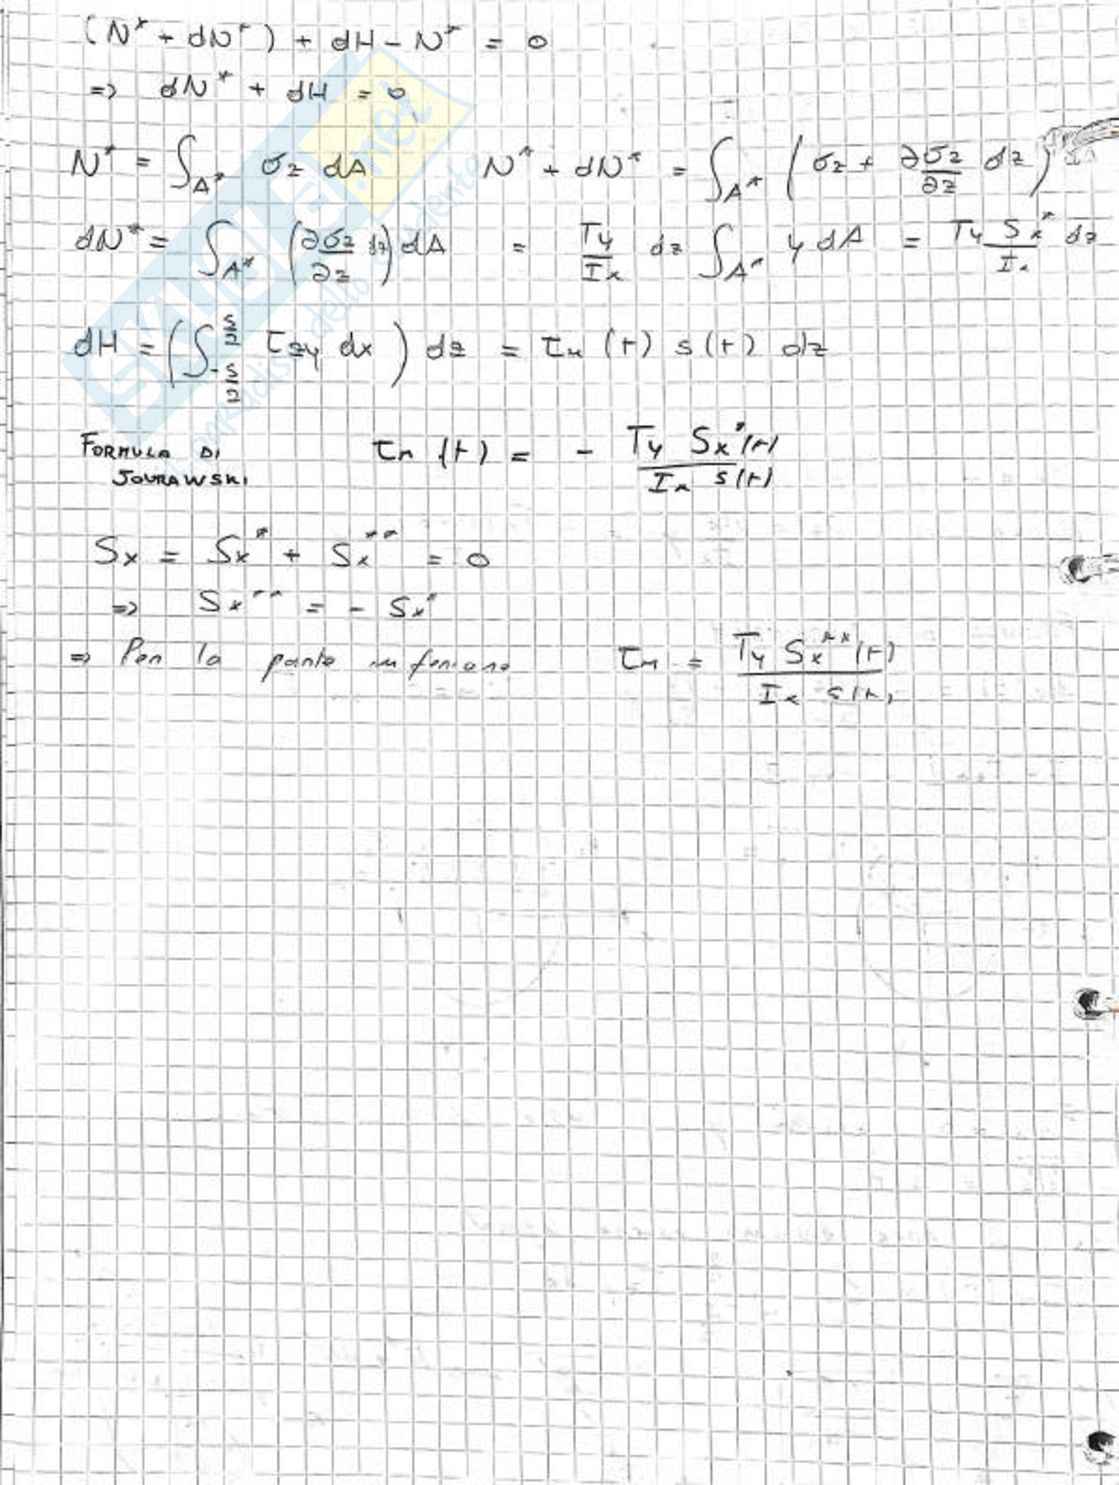 (N* + dN*) + dH - N* = 0
=> dN* + dH = 0
N* = ∫_A* σz dA N* + dN* = ∫_A* (σz + ∂σz/∂z dz)
dN* = ∫_A* (∂σz/∂z dz) dA = Ty/Ix dz ∫_A* y dA = Ty Sx*/Ix dz
dH = (∫_{-s/2}^{s/2} τzy dx) dz = τm (t) s(t) dz
FORMULA DI
JOURAWSKI
τm (t) = - Ty Sx*(t) / Ix s(t)
Sx = Sx* + Sx** = 0
=> Sx** = - Sx*
=> Per la parte inferiore τm = Ty Sx**(t) / Ix s(t)